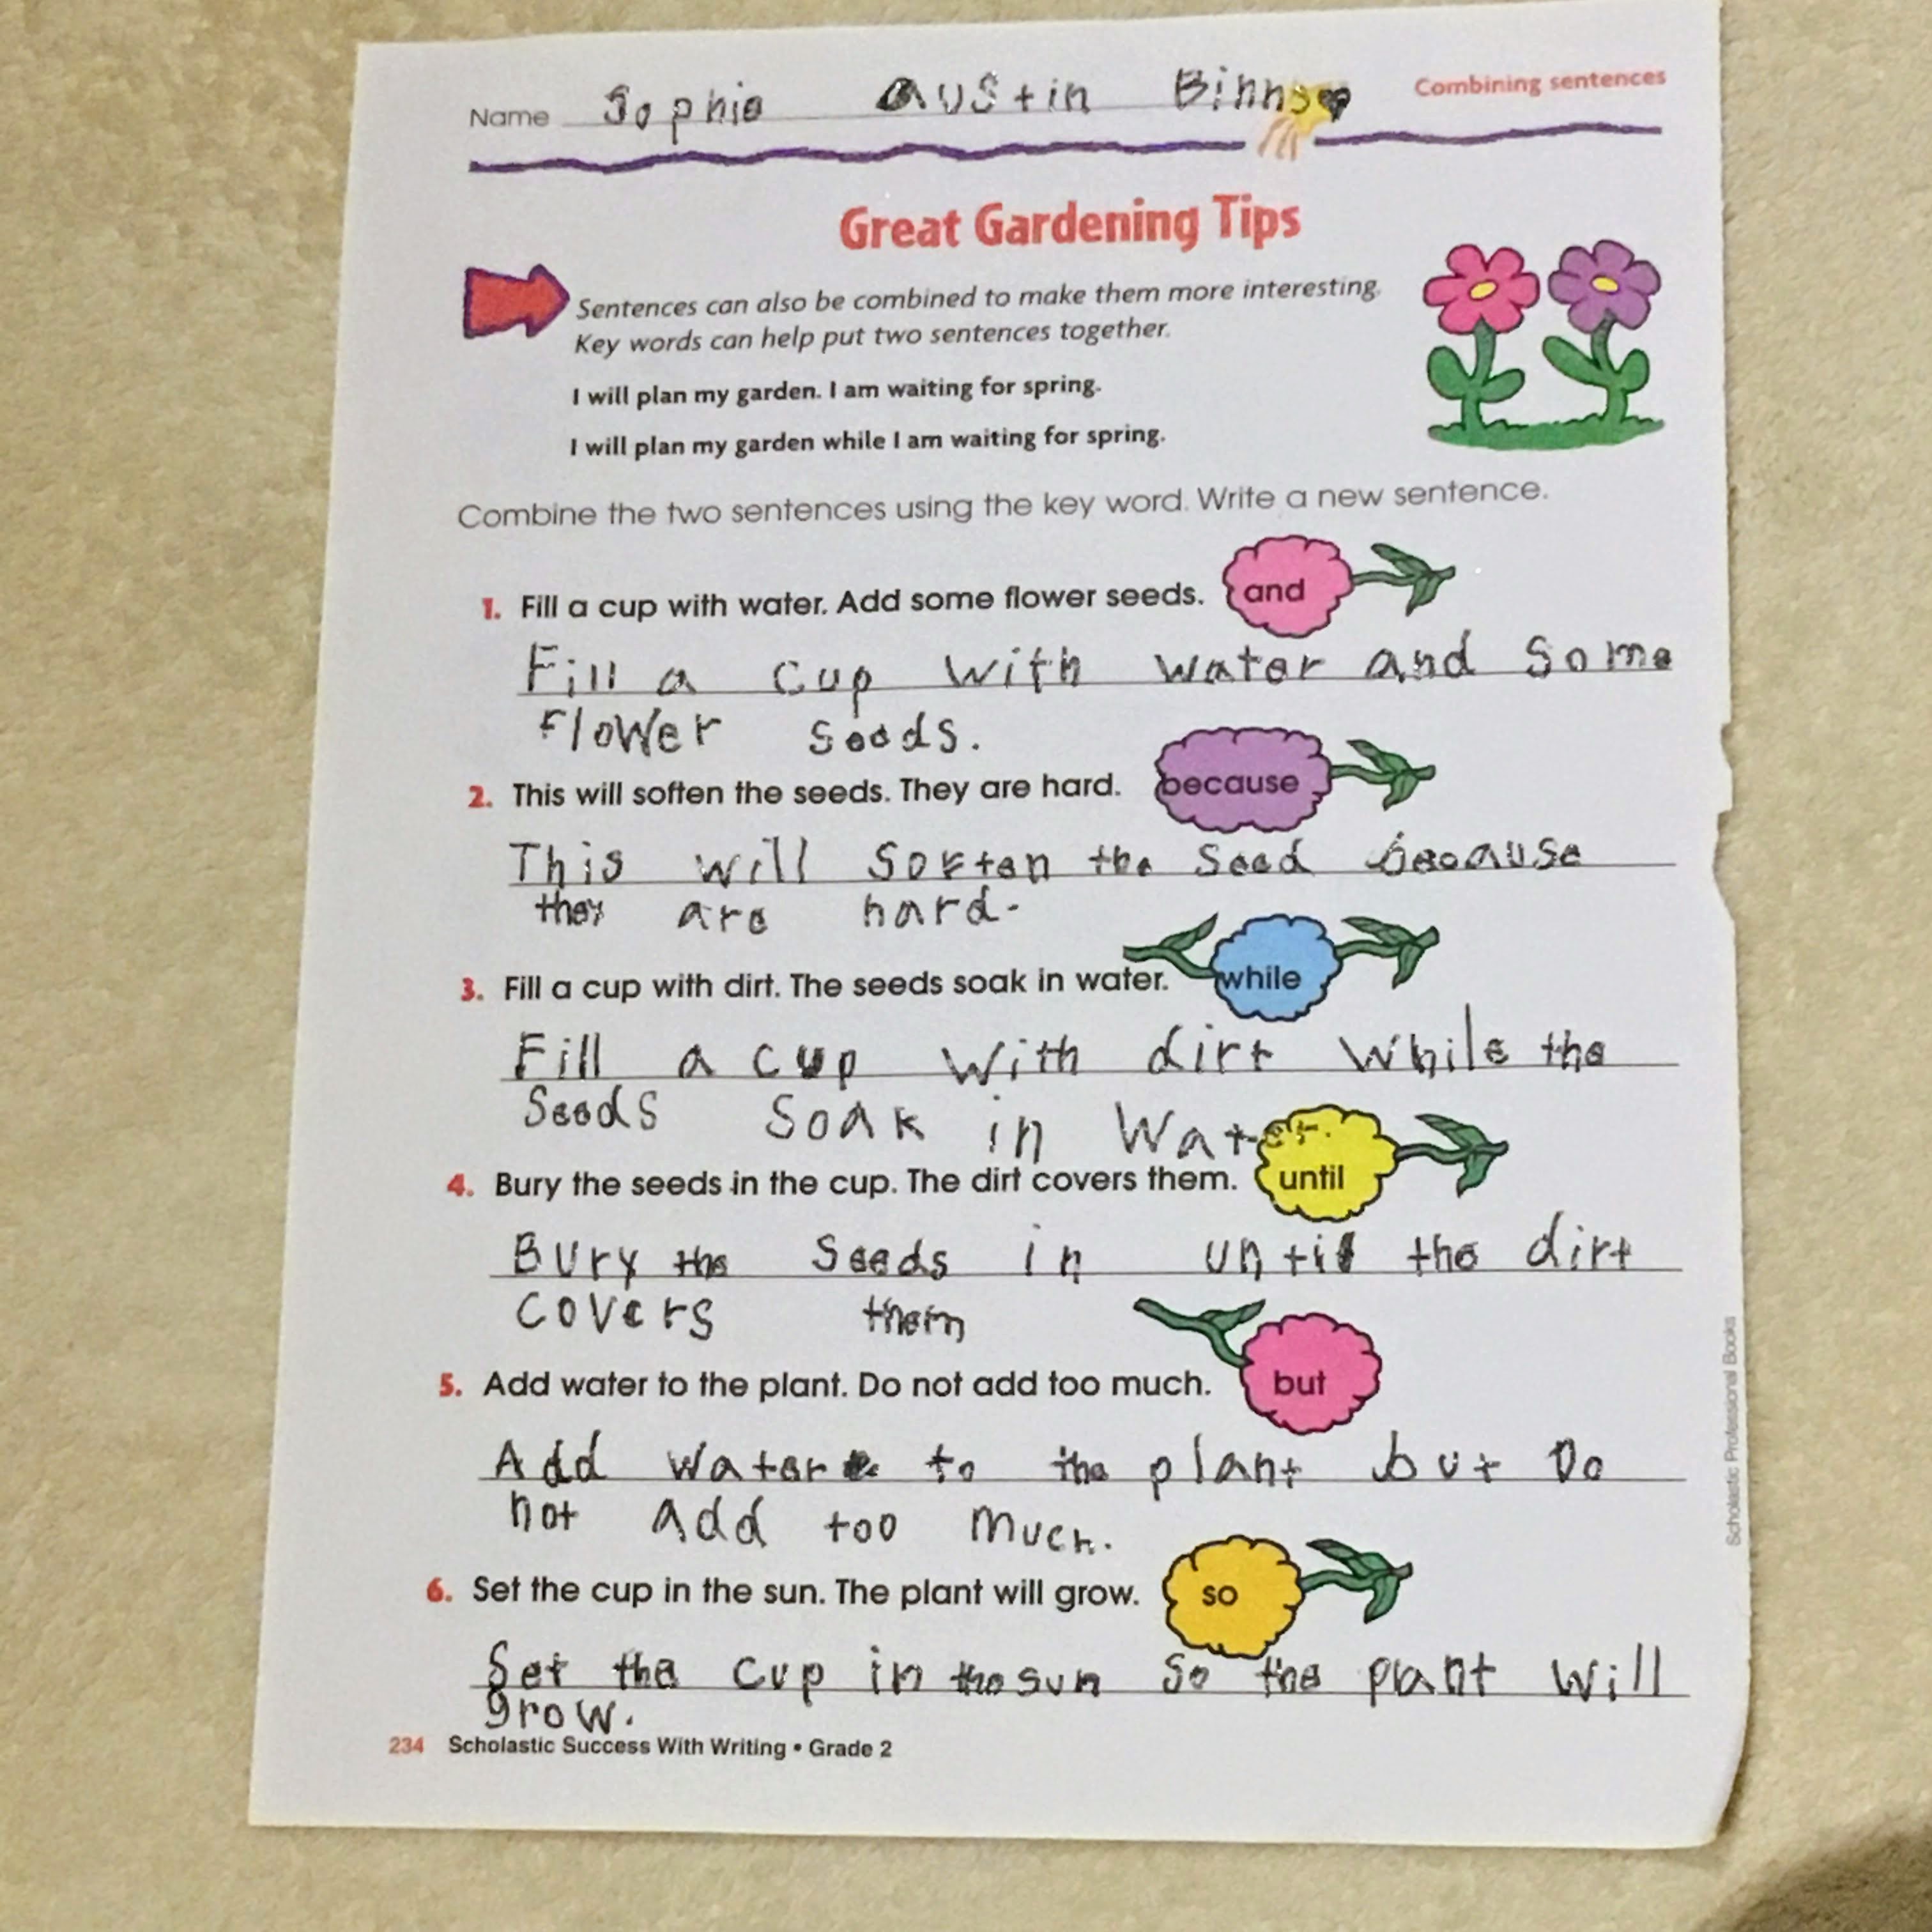 Name Sophie Austin Binns Combining sentences
Great Gardening Tips
Sentences can also be combined to make them more interesting.
Key words can help put two sentences together.
I will plan my garden. I am waiting for spring.
I will plan my garden while I am waiting for spring.
Combine the two sentences using the key word. Write a new sentence.
1. Fill a cup with water. Add some flower seeds. and
Fill a cup with water and some
flower seeds.
2. This will soften the seeds. They are hard. because
This will soften the seed because
they are hard.
3. Fill a cup with dirt. The seeds soak in water. while
Fill a cup with dirt while the
seeds soak in water.
4. Bury the seeds in the cup. The dirt covers them. until
Bury the seeds in until the dirt
covers them
5. Add water to the plant. Do not add too much. but
Add water to the plant but Do
not add too much.
6. Set the cup in the sun. The plant will grow. so
Set the cup in the sun so the plant will
grow.
234 Scholastic Success With Writing • Grade 2
Scholastic Professional Books